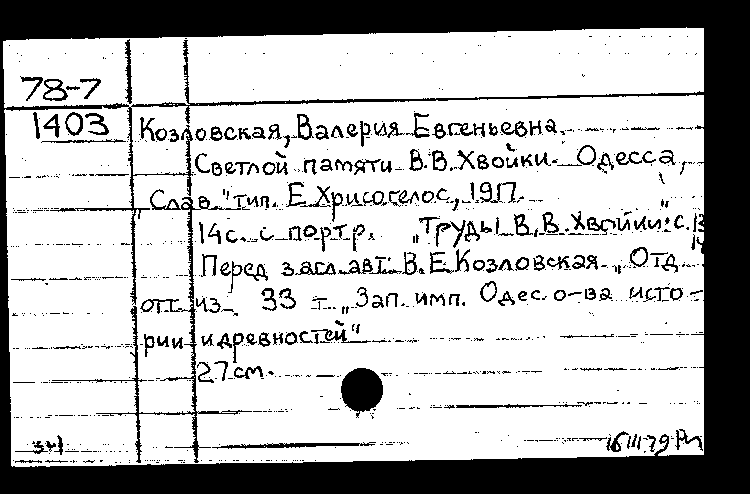 78-7
1403
Козловская, Валерия Евгеньевна.
Светлой памяти В.В.Хвойки. Одесса,
"Слав." тип. Е.Хрисогелос, 1917.
14с. с портр. "Труды В.В.Хвойки": с.13
14
Перед загл.авт: В.Е.Козловская. "Отд.
отт. из 33 т. "Зап. имп. Одес. о-ва исто-
рии и древностей"
27см.
16 III 79